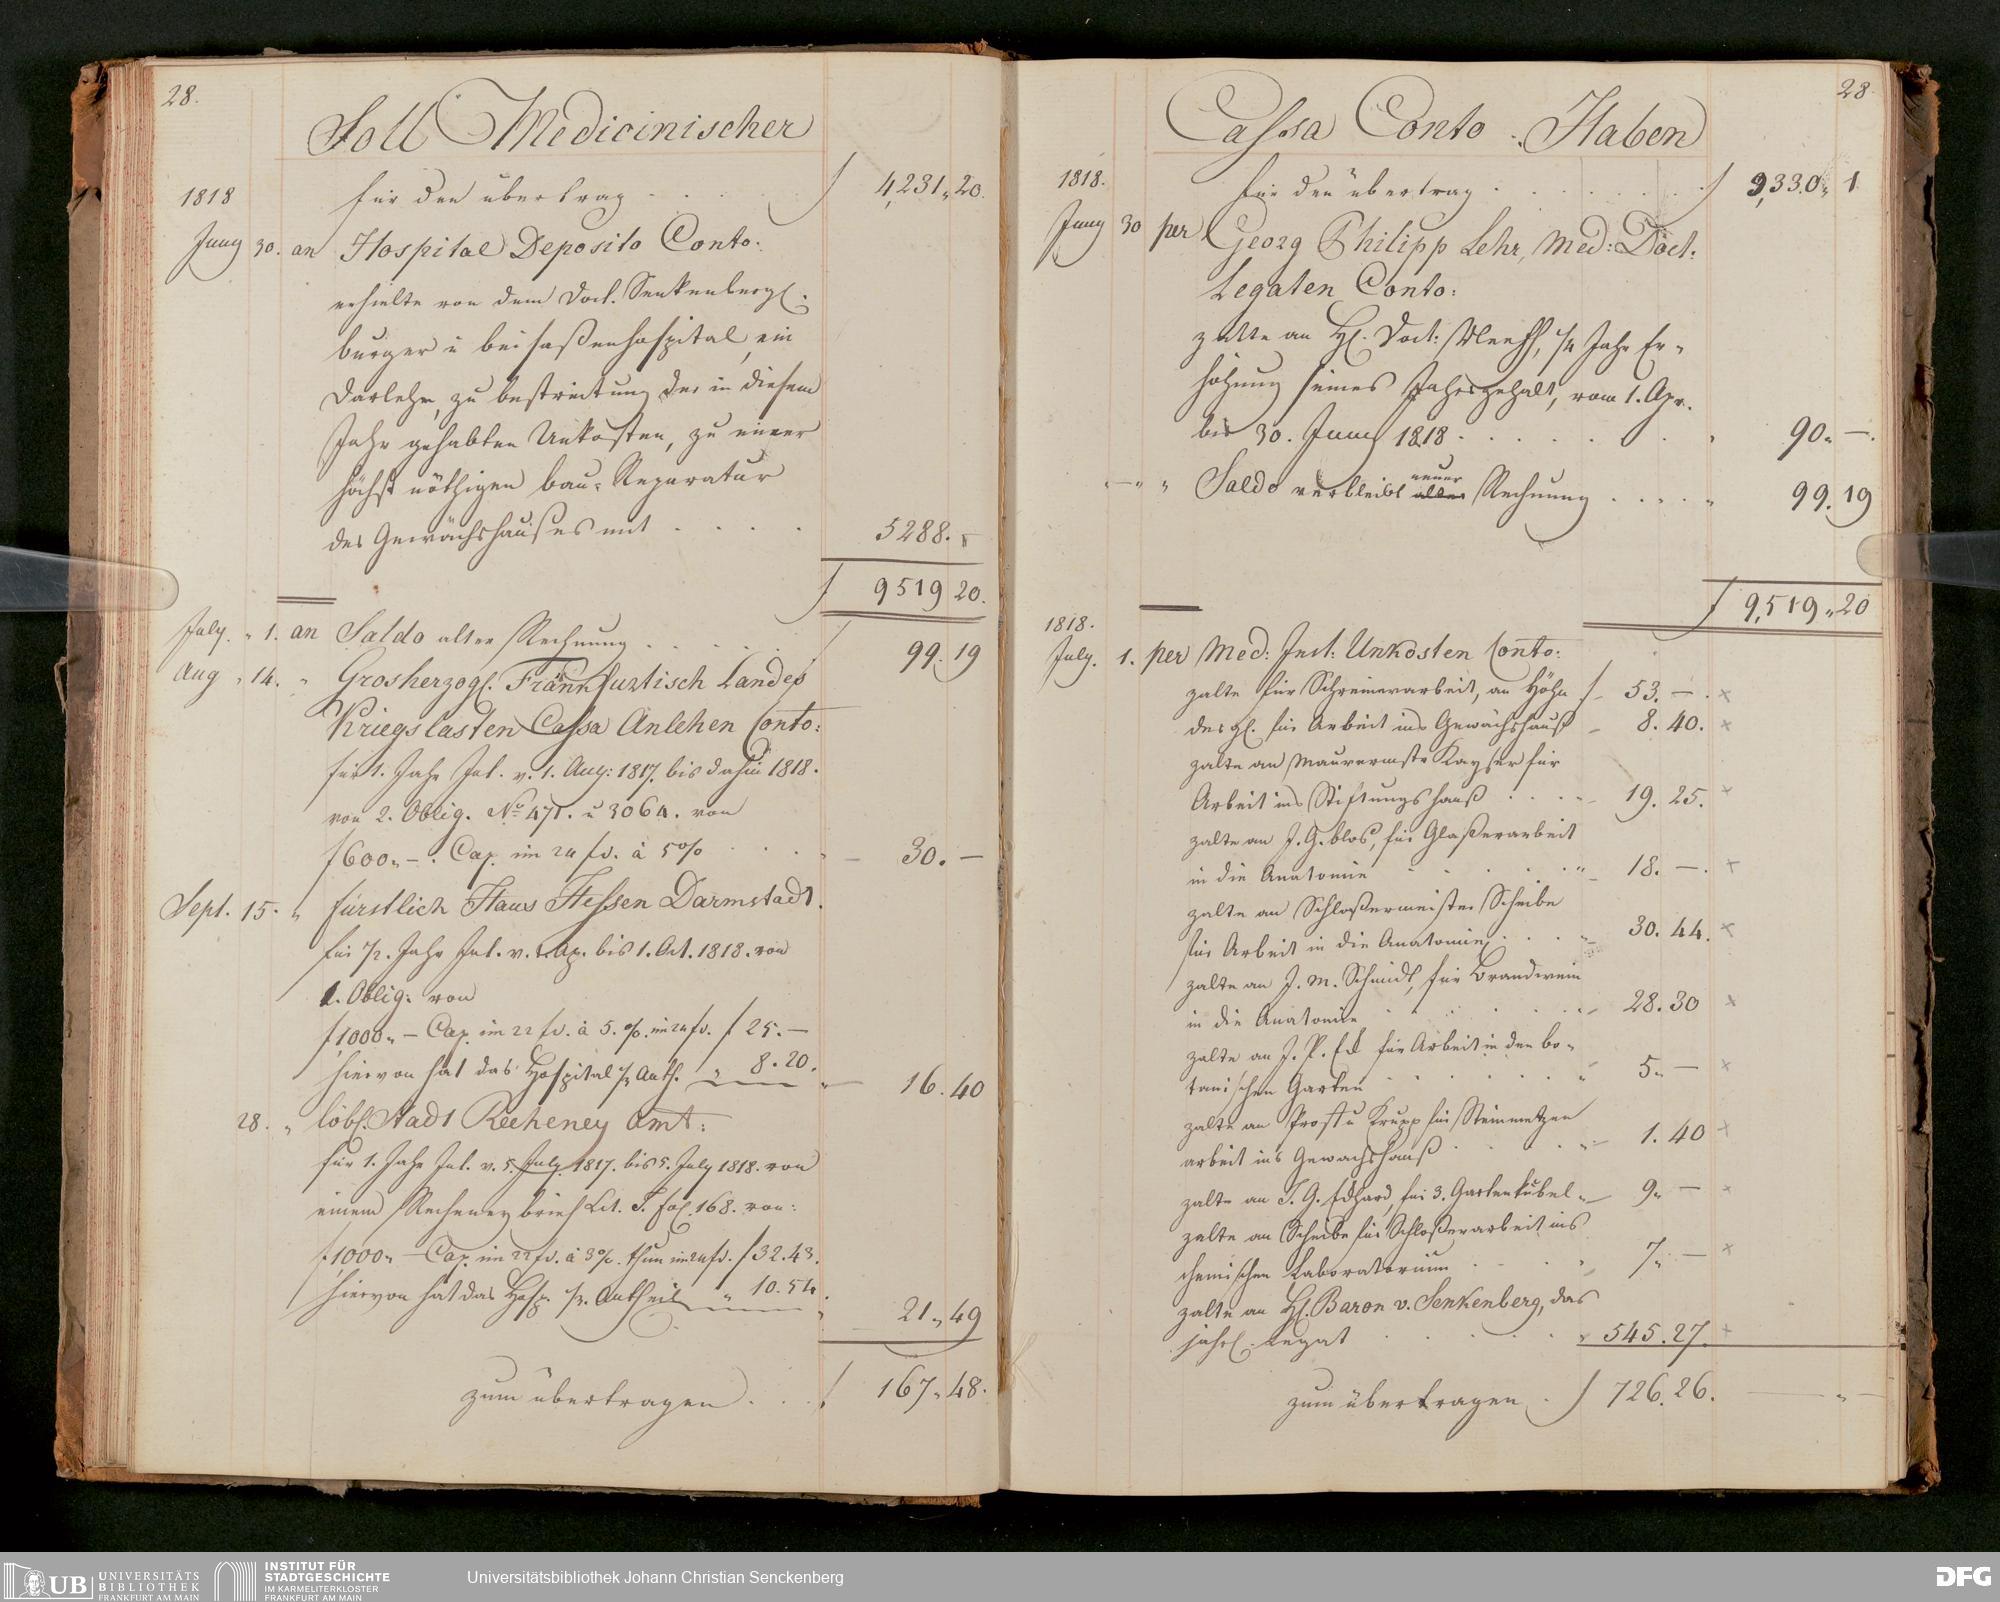 28.
Soll Medicinischer
1818 für den übertrag . . . . f 4,231 „ 20.
Juny 30. an Hospital Deposito Conto:
erhielte von dem Doct. Senkenbergl.
burger u beisaßenhospital, ein
Darlehn, zu bestreitung der in diesem
Jahr gehabten Unkosten, zu einer
höchst nöthigen bau-Reparatur
des Gewächshaußes mit . . . . 5288. –
f 9519 20.
July. „ 1. an Saldo alter Rechnung . . . . . f 99. 19
Aug „ 14. „ Grosherzogl. Fränkfurtisch Landes
Kriegslasten Cassa Anlehen Conto:
für 1. Jahr Int. v. 1. Aug: 1817. bis dahin 1818.
von 2. Oblig. No 471. u 3064. von
f 600„ –. Cap. im 24 fl. à 5% . . . „ – 30. –
Sept. 15. „ fürstlich Haus Hessen Darmstadt.
für 1/2. Jahr Int. v. 1. Ap. bis 1. Oct. 1818. von
1. Oblig: von
f 1000„ – Cap. im 22 fl. à 5. % im 24 fl. f 25. –
hiervon hat das Hospital 1/3 Anth. „ 8. 20. „ – 16. 40
28. „ löbl. Stadt Recheney Amt:
für 1. Jahr Int. v. 5. July. 1817. bis 5. July 1818. von
einem Recheney brief Lit. T. fol. 168. von:
f 1000„ – Cap. im 22 fl. à 3%. thun im 24 fl. f 32. 43.
hiervon hat das Hosp. 1/3. Antheil „ 10. 54. „ 21 „ 49
zum übertragen . . . f 167 „ 48.
28
Cassa Conto . Haben
1818. für den übertrag . . . . . . f 9,330 „ 1
Juny 30 per Georg Philipp Lehr, Med: Doct.
Legaten Conto:
zalte an H. Doct: Neeff, 1/4 Jahr Er-
höhung seines Jahrsgehalt, vom 1. Apr.
bis 30. Juny 1818 . . . . . . „ 90„ –.
– „ „ Saldo verbleibt neuer alter Rechnung . . . . „ 99. 19
f 9,519 „ 20
1818.
July. 1. per Med: Inst: Unkosten Conto:
zalte für Schreinerarbeit, an Höhn f – 53. – . x
desgl. für Arbeit ins Gewächshauß – 8. 40. x
zalte an Maurermstr Kayser für
Arbeit ins Stiftungshauß . . . „ – 19. 25. x
zalte an J. G. blos, für Glaßerarbeit
in die Anatomie . . . . . „ – 18. – . x
zalte an Schloßermeister Scheibe
für Arbeit in die Anatomie . . . „ – 30. 44. x
zalte an J. M. Schmidt, für Brandwein
in die Anatomie . . . . . „ – 28. 30 x
zalte an J. P. Eck für Arbeit in den bo-
tanischen Garten . . . . . „ 5„ – x
zalte an Prost u Krupp für Steinmetzen
arbeit ins Gewachshauß . . . . „ – 1. 40 x
zalte an J. G. Edhard, für 3. Gartenkübel „ – 9„ – x
zalte an Scheibe für Schloßerarbeit ins
chemischen Laboratorium . . . . „ 7„ – x
zalte an H. Baron v. Senkenberg, das
jährl. Legat . . . . „ 545. 27. x
zum übertragen . f 726. 26. – „ –
UB UNIVERSITÄTS
BIBLIOTHEK
FRANKFURT AM MAIN
INSTITUT FÜR
STADTGESCHICHTE
IM KARMELITERKLOSTER
FRANKFURT AM MAIN
Universitätsbibliothek Johann Christian Senckenberg
DFG